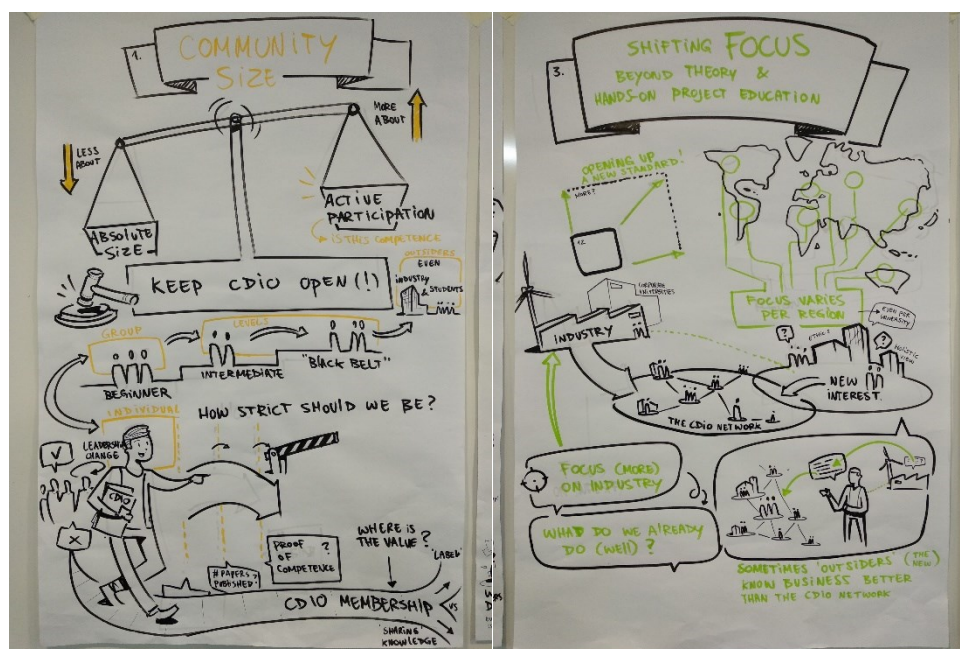 1.
COMMUNITY
SIZE
LESS
ABOUT
MORE
ABOUT
ABSOLUTE
SIZE
ACTIVE
PARTICIPATION
IS THIS COMPETENCE
KEEP CDIO OPEN (!)
OUTSIDERS
EVEN
INDUSTRY
& STUDENTS
GROUP
LEVELS
BEGINNER
INTERMEDIATE
"BLACK BELT"
INDIVIDUAL
HOW STRICT SHOULD WE BE?
LEADERSHIP
CHANGE
CDIO
# PAPERS
PUBLISHED
?
PROOF ?
OF
COMPETENCE
WHERE IS
THE VALUE?
'LABEL'
VS
CDIO MEMBERSHIP
'SHARING'
KNOWLEDGE
3.
SHIFTING FOCUS
BEYOND THEORY &
HANDS-ON PROJECT EDUCATION
OPENING UP
A NEW STANDARD!
MORE?
12
CORPORATE
UNIVERSITIES
INDUSTRY
FOCUS VARIES
PER REGION
EVEN PER
UNIVERSITY
?
ETHICS
?
HOLISTIC
VIEW
NEW
INTEREST.
THE CDIO NETWORK
FOCUS (MORE)
ON INDUSTRY
WHAT DO WE ALREADY
DO (WELL) ?
SOMETIMES 'OUTSIDERS' (THE NEW)
KNOW BUSINESS BETTER
THAN THE CDIO NETWORK